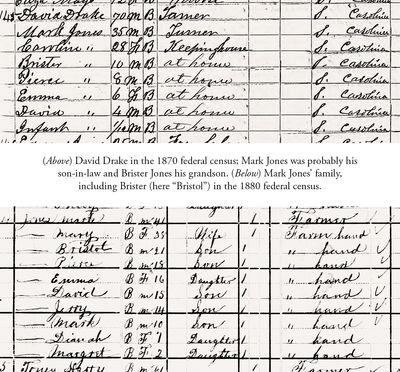 David Drake 70 M B Turner S. Carolina
Mark Jones 35 M B Turner S. Carolina
Caroline " 28 F B Keeping house S. Carolina
Brister " 10 M B at home S. Carolina
Pierce " 8 M B at home S. Carolina
Emma " 6 F B at home S. Carolina
David " 4 M B at home S. Carolina
Infant " M B at home S. Carolina
(Above) David Drake in the 1870 federal census; Mark Jones was probably his
son-in-law and Brister Jones his grandson. (Below) Mark Jones' family,
including Brister (here “Bristol”) in the 1880 federal census.
Jones Mark B M 41 1 Farmer
Mary B F 35 Wife 1 Farm hand
Bristol B M 21 Son 1 " hand
Pierce B M 18 Son 1 " hand
Emma B F 16 Daughter 1 " hand
David B M 15 Son 1 " hand
Jerry B M 14 Son 1 " hand
Mark B M 10 Son 1 " hand
Dianah B F 7 Daughter 1 " hand
Margret B F 2 Daughter 1 " hand
B M Farmer